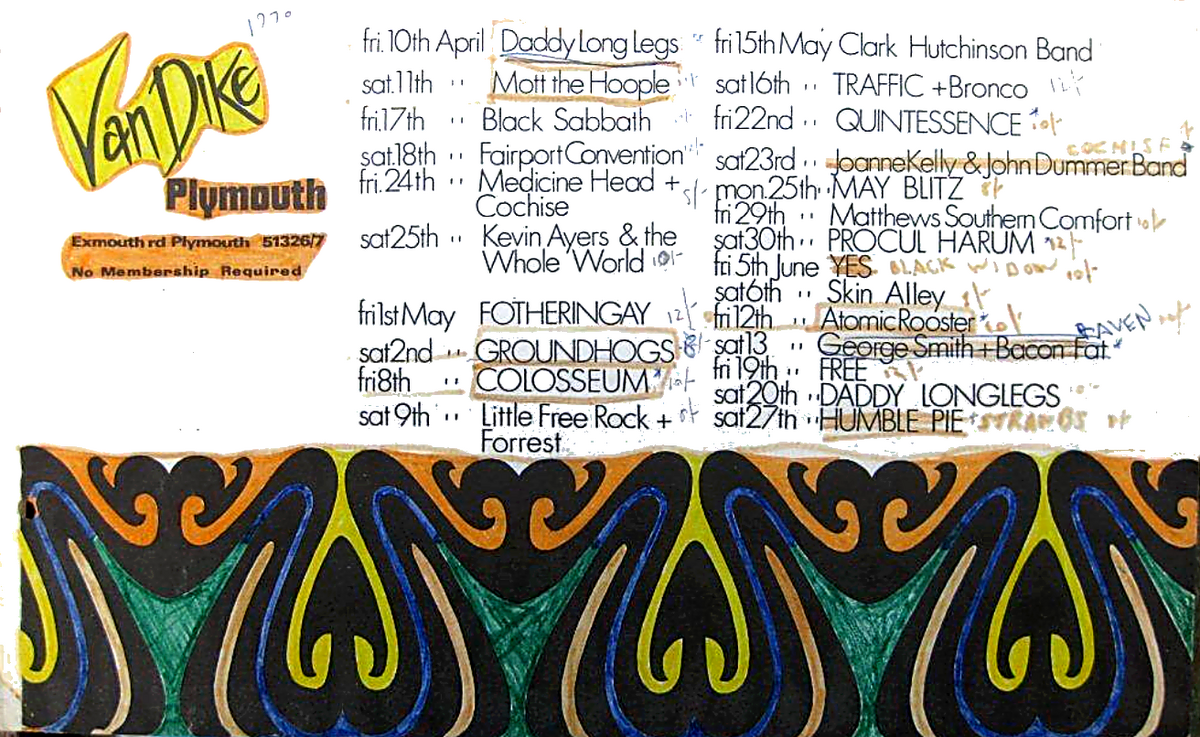 1970
Van Dike
Plymouth
Exmouth rd Plymouth 51326/7
No Membership Required
fri.10th April Daddy Long Legs
sat.11th '' Mott the Hoople
fri.17th '' Black Sabbath
sat.18th '' Fairport Convention
fri.24th '' Medicine Head +
Cochise 5/-
sat25th '' Kevin Ayers & the
Whole World 10/-
fri1st May FOTHERINGAY 12/-
sat2nd '' GROUNDHOGS 8/-
fri8th '' COLOSSEUM 10/-
sat 9th '' Little Free Rock +
Forrest
fri15th May Clark Hutchinson Band
sat16th '' TRAFFIC + Bronco 12/-
fri22nd '' QUINTESSENCE 10/-
COCHISE
sat23rd '' Joanne Kelly & John Dummer Band
mon.25th '' MAY BLITZ 8/-
fri29th '' Matthews Southern Comfort 10/-
sat30th '' PROCUL HARUM 12/-
fri 5th June YES BLACK WIDOW 10/-
sat6th '' Skin Alley
fri12th '' Atomic Rooster 10/-
RAVEN
sat13 '' George Smith + Bacon Fat
fri 19th '' FREE
sat20th '' DADDY LONGLEGS
sat27th '' HUMBLE PIE + STRAWBS